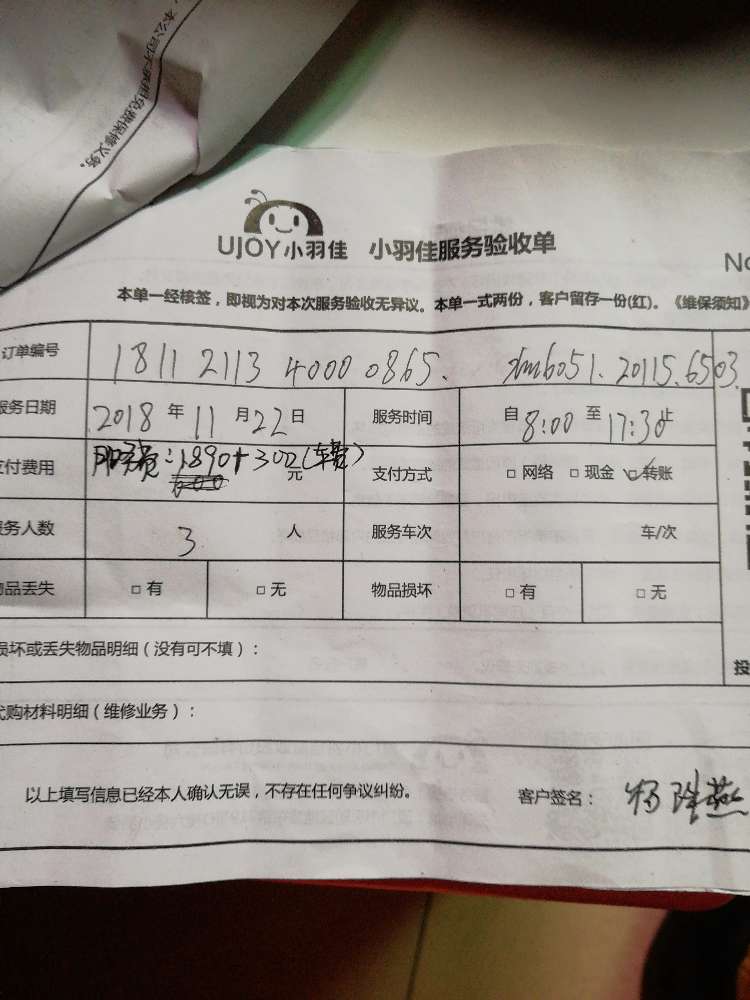 本公司不承担免费保修义务。
UJOY小羽佳 小羽佳服务验收单
No
本单一经核签，即视为对本次服务验收无异议。本单一式两份，客户留存一份(红)。《维保须知》
订单编号 1811 2113 4000 0865. xm6051.20115.6503
服务日期 2018 年 11 月 22 日 服务时间 自 8:00 至 17:30 止
支付费用 1890+300(车费) 元 支付方式 □ 网络 □ 现金 ☑ 转账
服务人数 3 人 服务车次 车/次
物品丢失 □ 有 □ 无 物品损坏 □ 有 □ 无
损坏或丢失物品明细（没有可不填）：
代购材料明细（维修业务）：
投
以上填写信息已经本人确认无误，不存在任何争议纠纷。 客户签名：